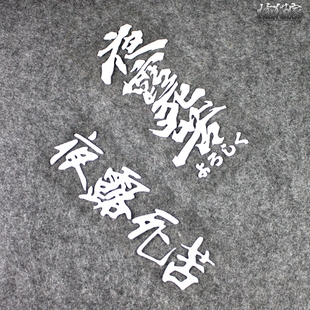 夜露死苦
よろしく
夜露死苦